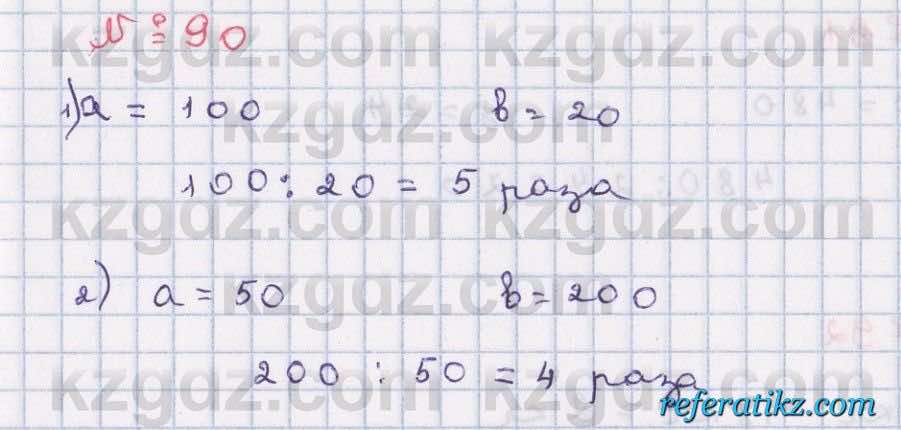 № 90
1) a = 100 b = 20
100 : 20 = 5 раза
2) a = 50 b = 200
200 : 50 = 4 раза
kzgdz.com
referatikz.com